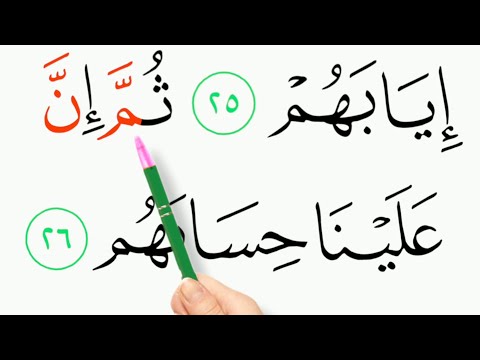 إِيَابَهُمْ ٢٥ ثُمَّ إِنَّ
عَلَيْنَا حِسَابَهُم ٢٦